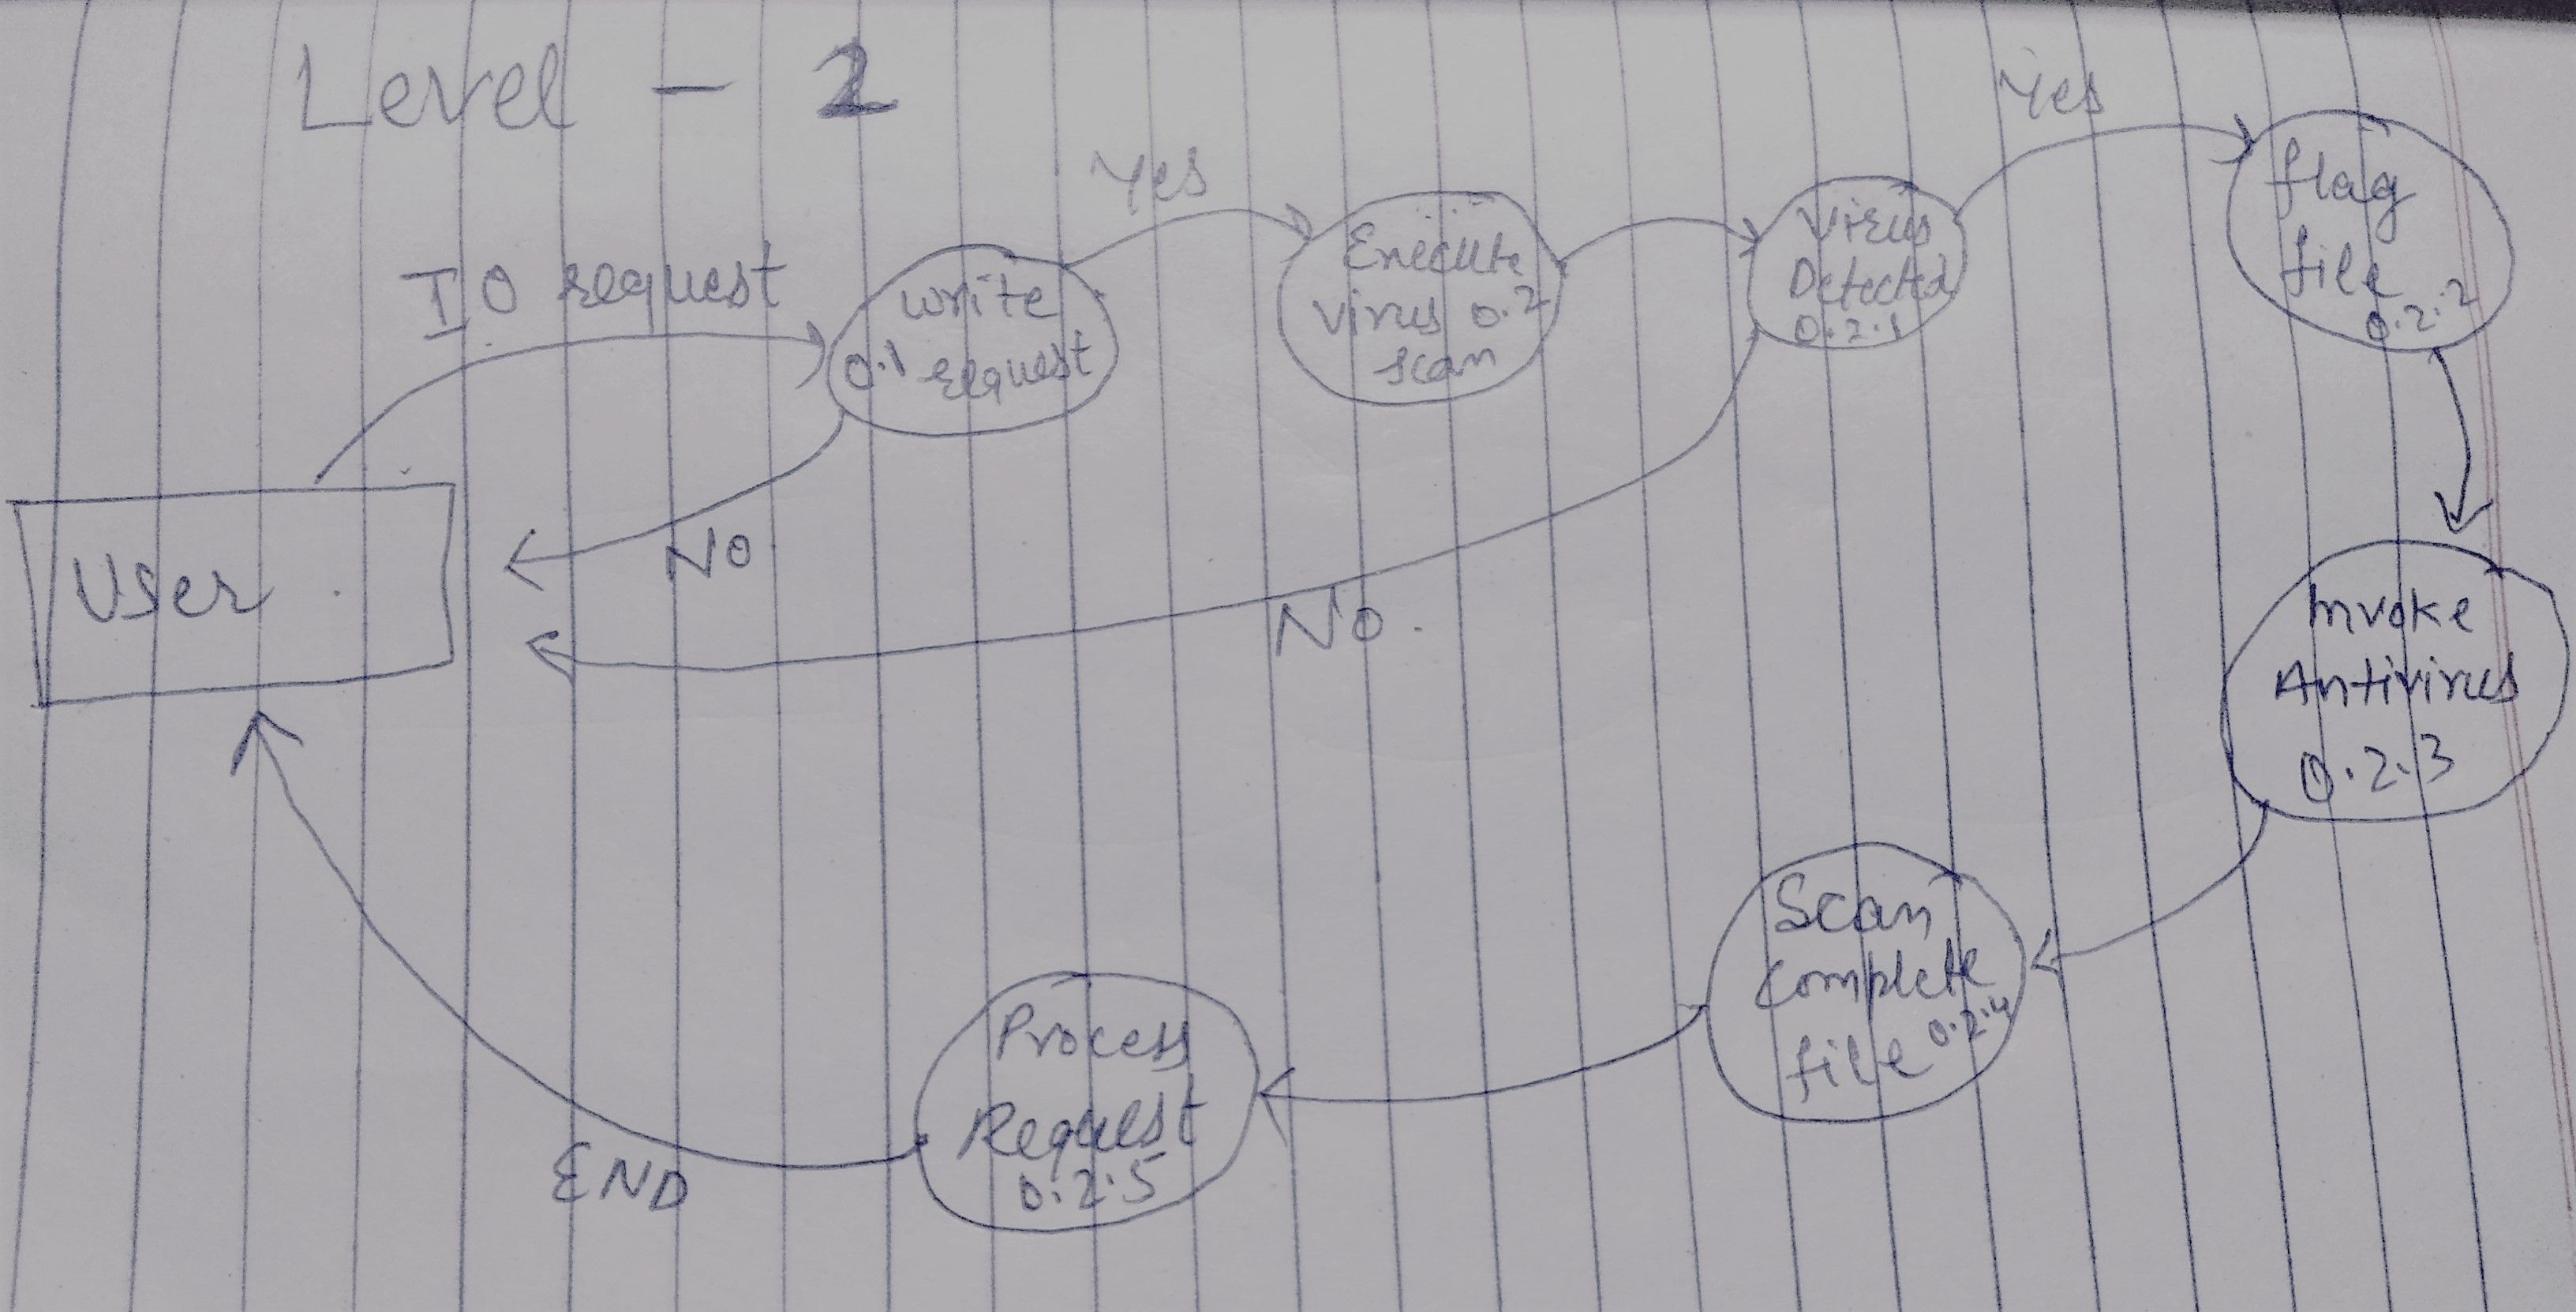 Level - 2
Yes
Yes
IO request
write
0.1 request
Execute
virus 0.2
scan
Virus
Detected
0.2.1
flag
file
0.2.2
User
NO
NO.
Invoke
Antivirus
0.2.3
Scan
Complete
file 0.2.4
Process
Request
0.2.5
END